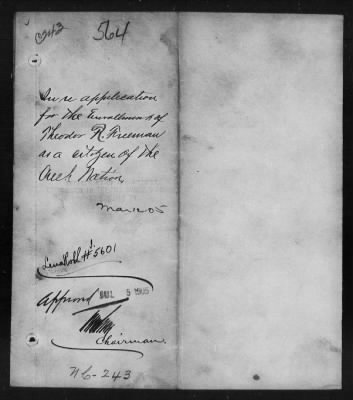 243
564
In re application
for the Enrollment of
Theodor R. Freeman
as a citizen of the
Creek Nation
Mar 05
#5601
Approved JUL 5 1905
Chairman.
NB-243